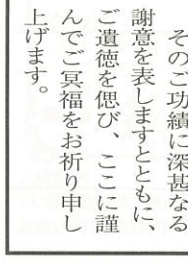 そのご功績に深甚なる
謝意を表しますとともに、
ご遺徳を偲び、ここに謹
んでご冥福をお祈り申し
上げます。